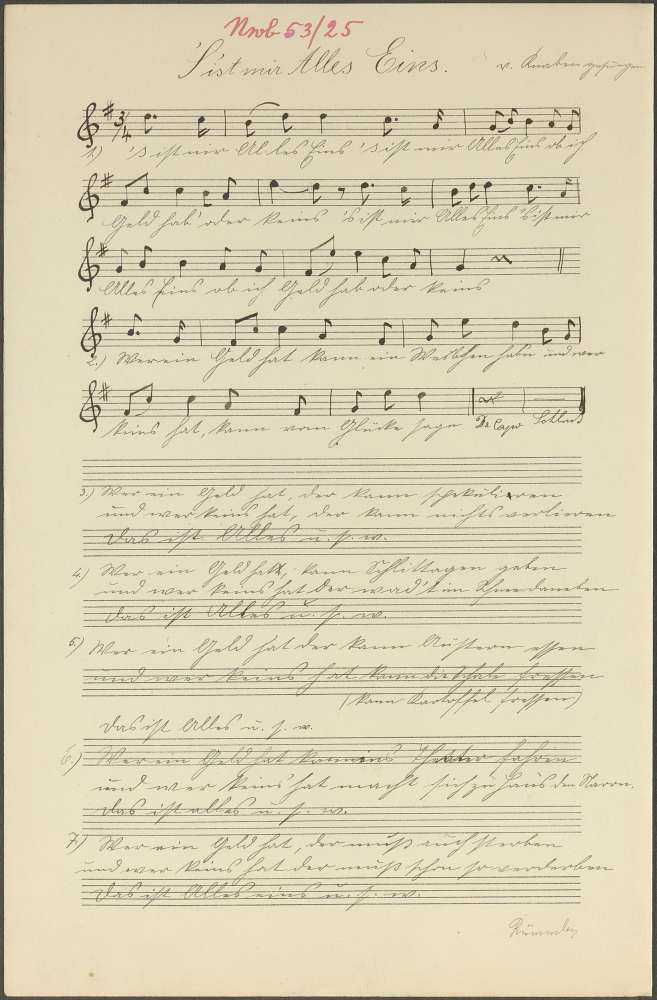 Nwb 53/25
'S ist mir Alles Eins.
v. Knaben gesungen
3/4
1.) 's ist mir Alles Eins 's ist mir Alles Eins ob ich
Geld hab' oder keins 's ist mir Alles Eins 's ist mir
Alles Eins ob ich Geld hab oder keins
2.) Wer ein Geld hat kann ein Weibchen habn und wer
keins hat, kann vom Glücke sage Da Capo Schluß
3.) Wer ein Geld hat, der kann spekulieren
und wer keins hat, der kann nichts verlieren
Das ist Alles u. s. w.
4.) Wer ein Geld hat, kann Schlittagen geben
und wer keins hat der wad't im Schnee daneben
Das ist Alles u. s. w.
5.) Wer ein Geld hat der kann Austern essen
und wer keins hat kann die Schale fressen
(kann Kartoffel fressen)
Das ist Alles u. s. w.
6.) Wer ein Geld hat kann ins Theater fahren
und wer keins hat macht sich zu Haus den Narrn.
Das ist alles u. s. w.
7.) Wer ein Geld hat, der muß auch sterben
und wer keins hat der muß schon so verderben
Das ist Alles eins u. s. w.